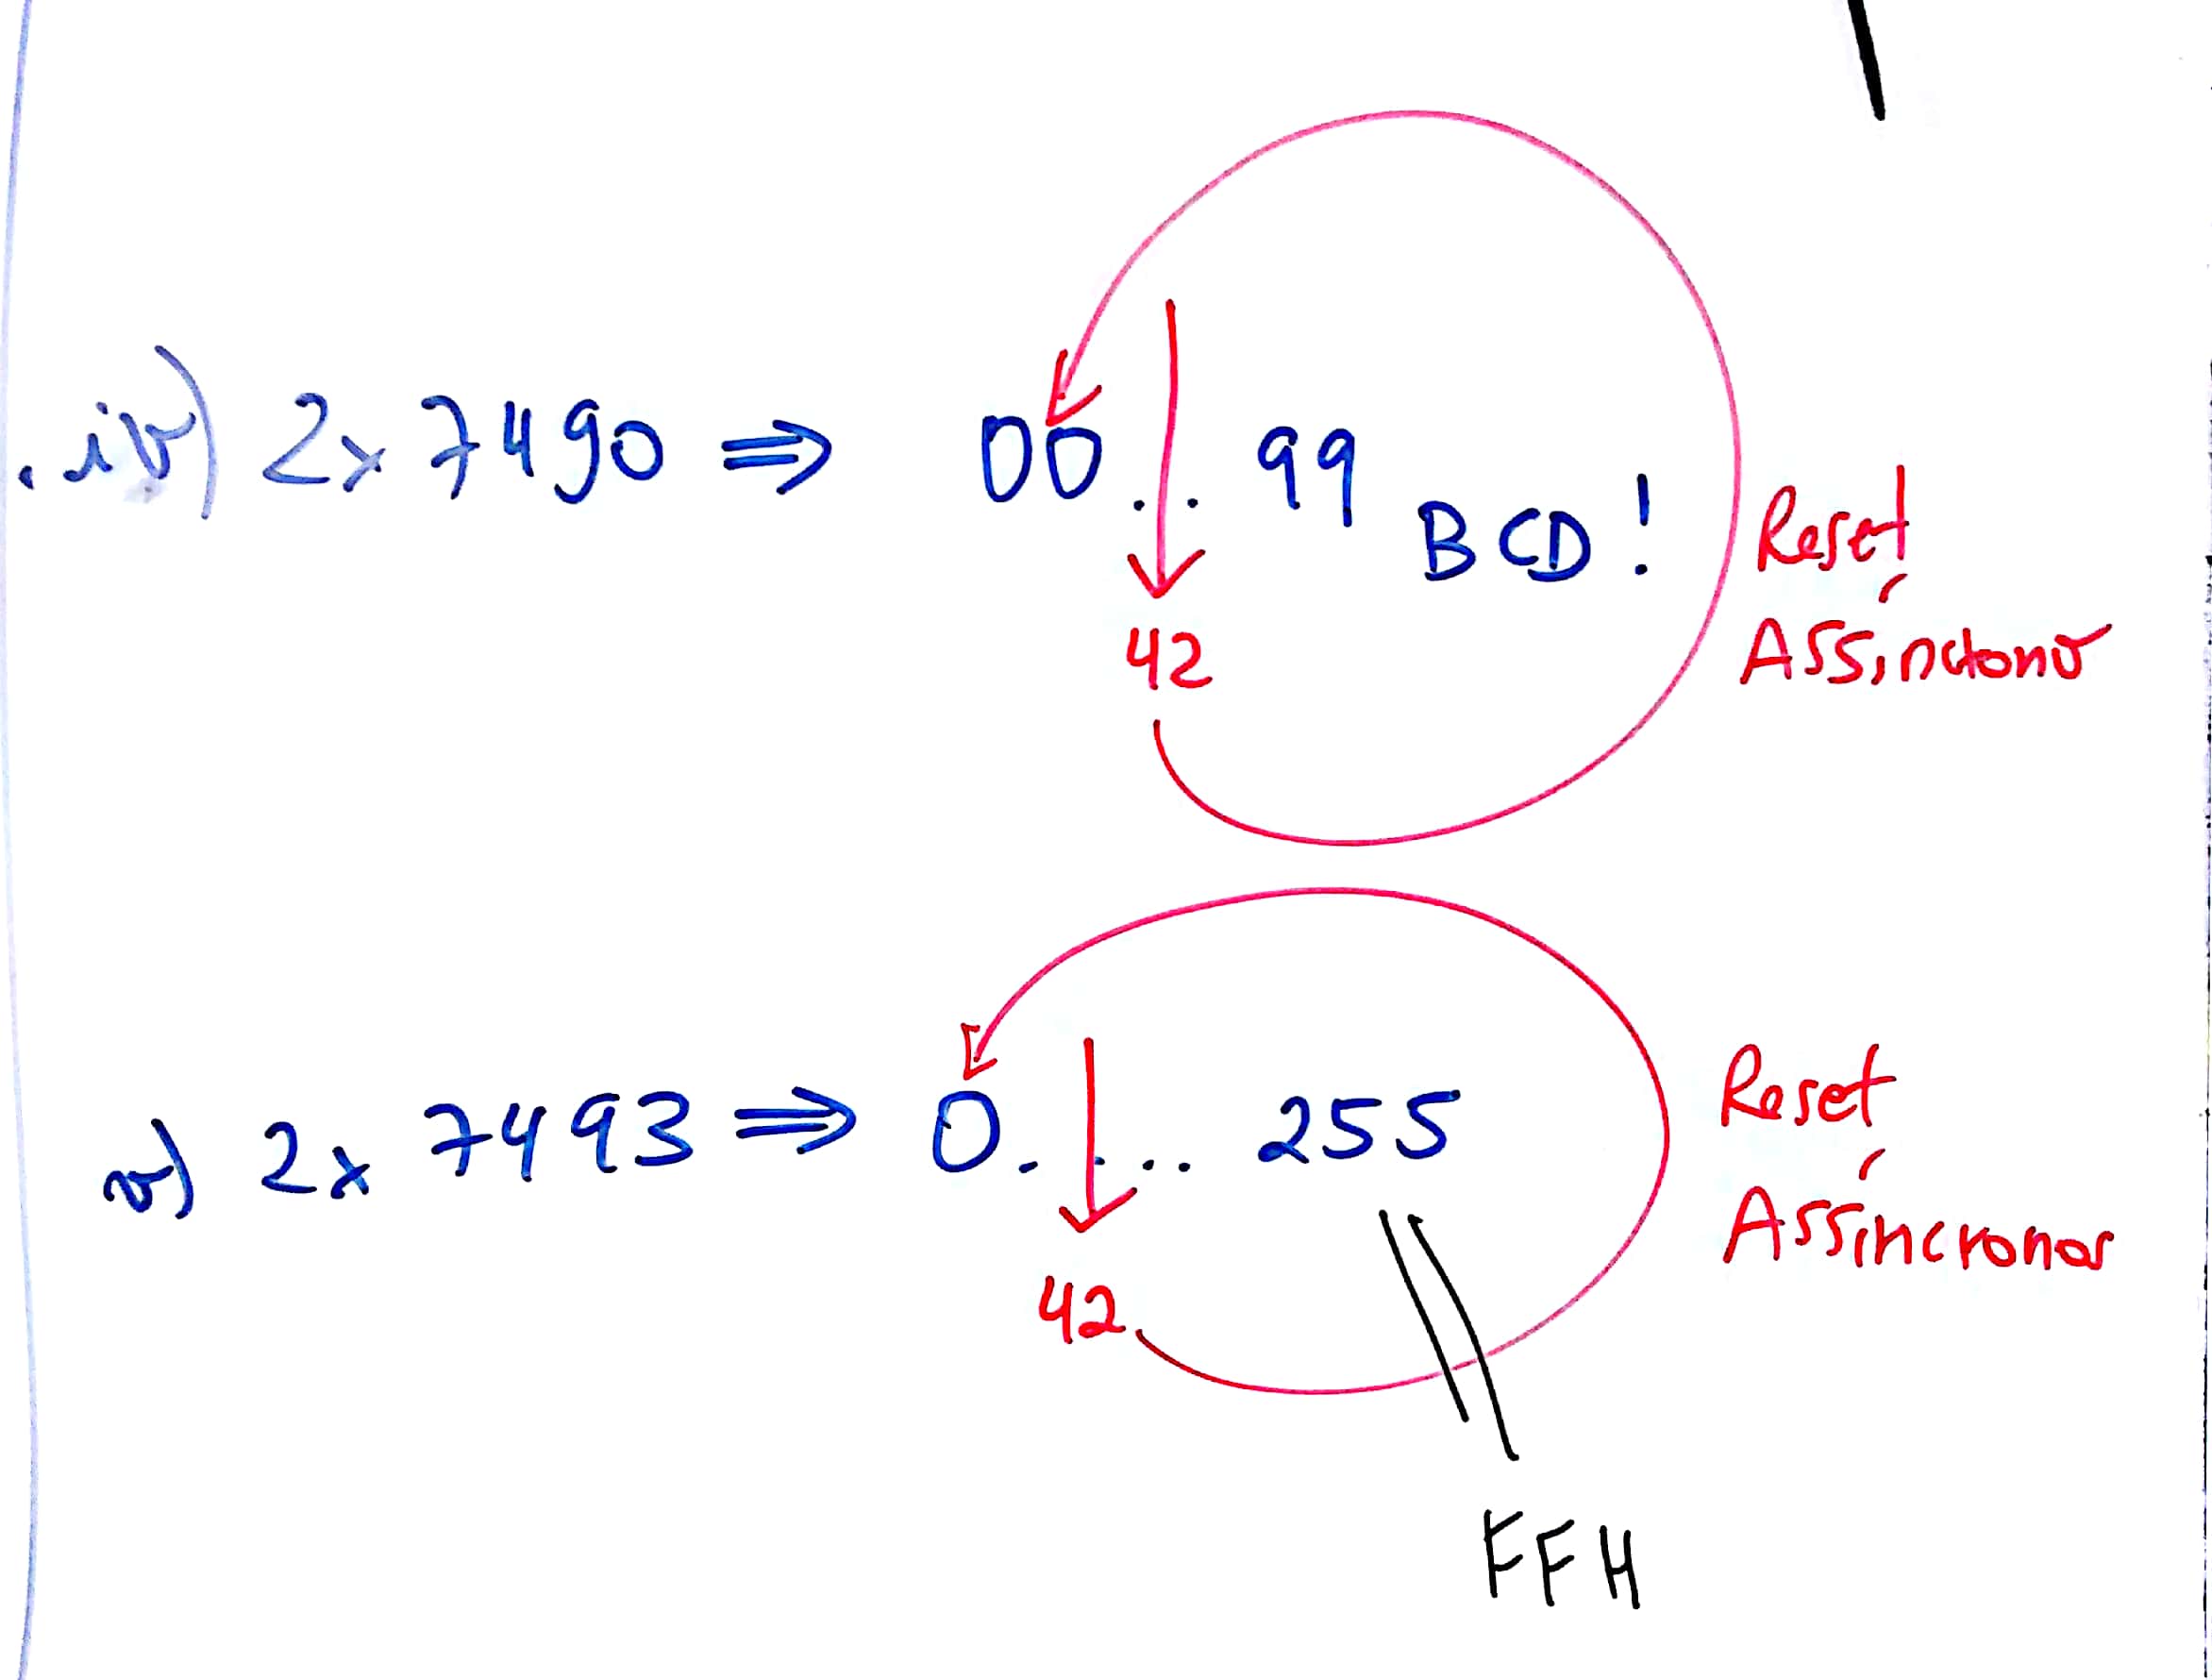 iv) 2x 7490 ⇒ 00 ... 99 BCD!
42
Reset
Assíncrono
v) 2x 7493 ⇒ 0. ... 255
42
Reset
Assíncronos
FFH